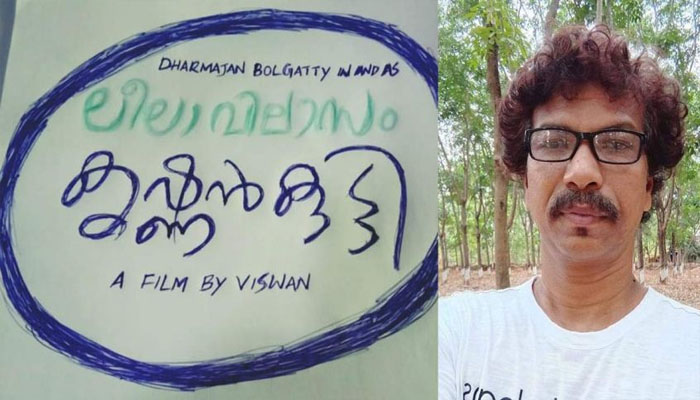 DHARMAJAN BOLGATTY IN AND AS
ലീലാവിലാസം
കൃഷ്ണൻകുട്ടി
A FILM BY VISWAN